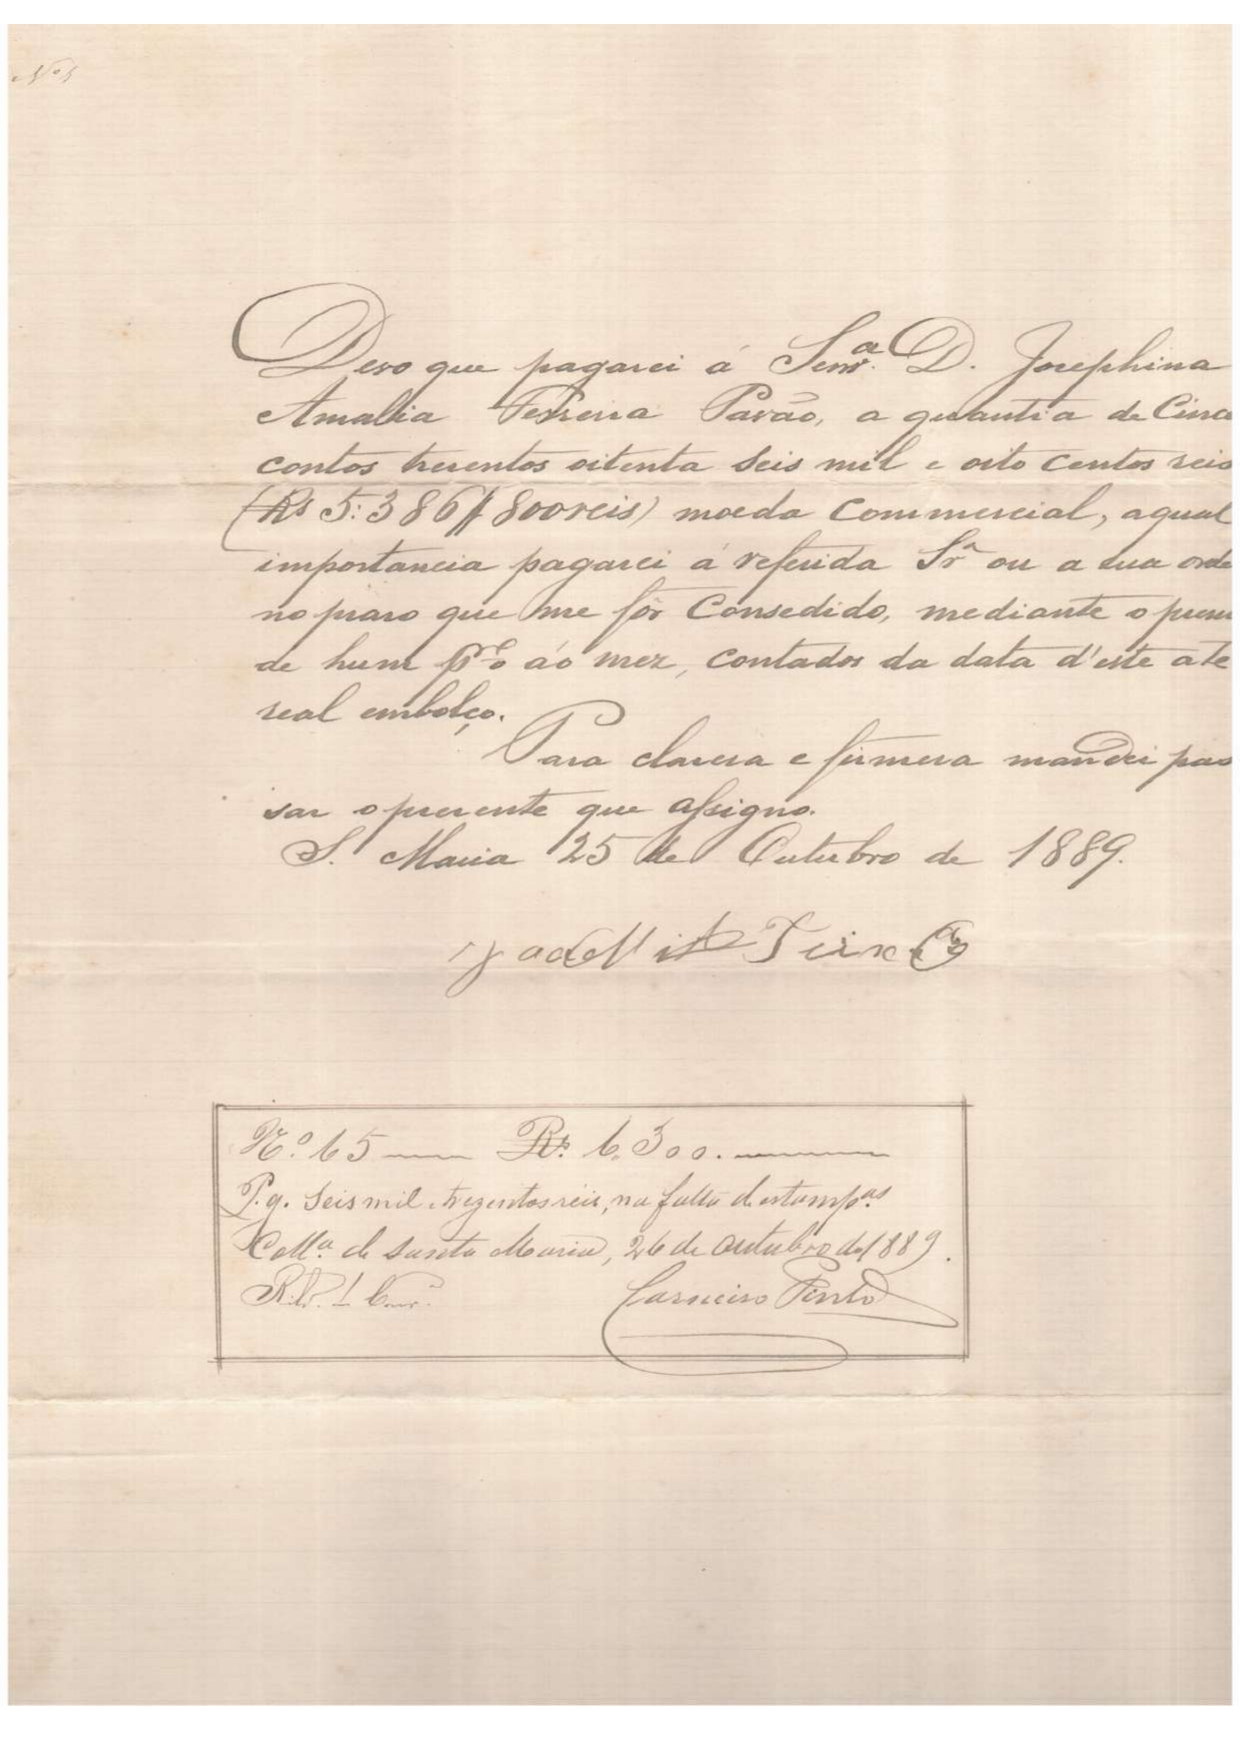 Nº 1
Devo que pagarei á Senrª. D. Josephina
Amalia Ferreira Pavão, a quantia de Cinco
contos tresentos oitenta seis mil e oito centos reis
(Rs 5:386$800 reis) moeda Commercial, aqual
importancia pagarei á referida Srª ou a sua orde
no praso que me fôr Consedido, mediante o premi
de hum p%o áo mez, contados da data d'este ate
real embolço.
Para claresa e firmesa mandei pas
sar o presente que assigno.
S. Maria 25 de Outubro de 1889.
Teixrª
Nº 65 — Rs. 6.300. —
P.g. Seis mil e trezentos réis, na falta d'estampªs
Collª de Santa Maria, 26 de Outubro de 1889.
Carneiro Pinto